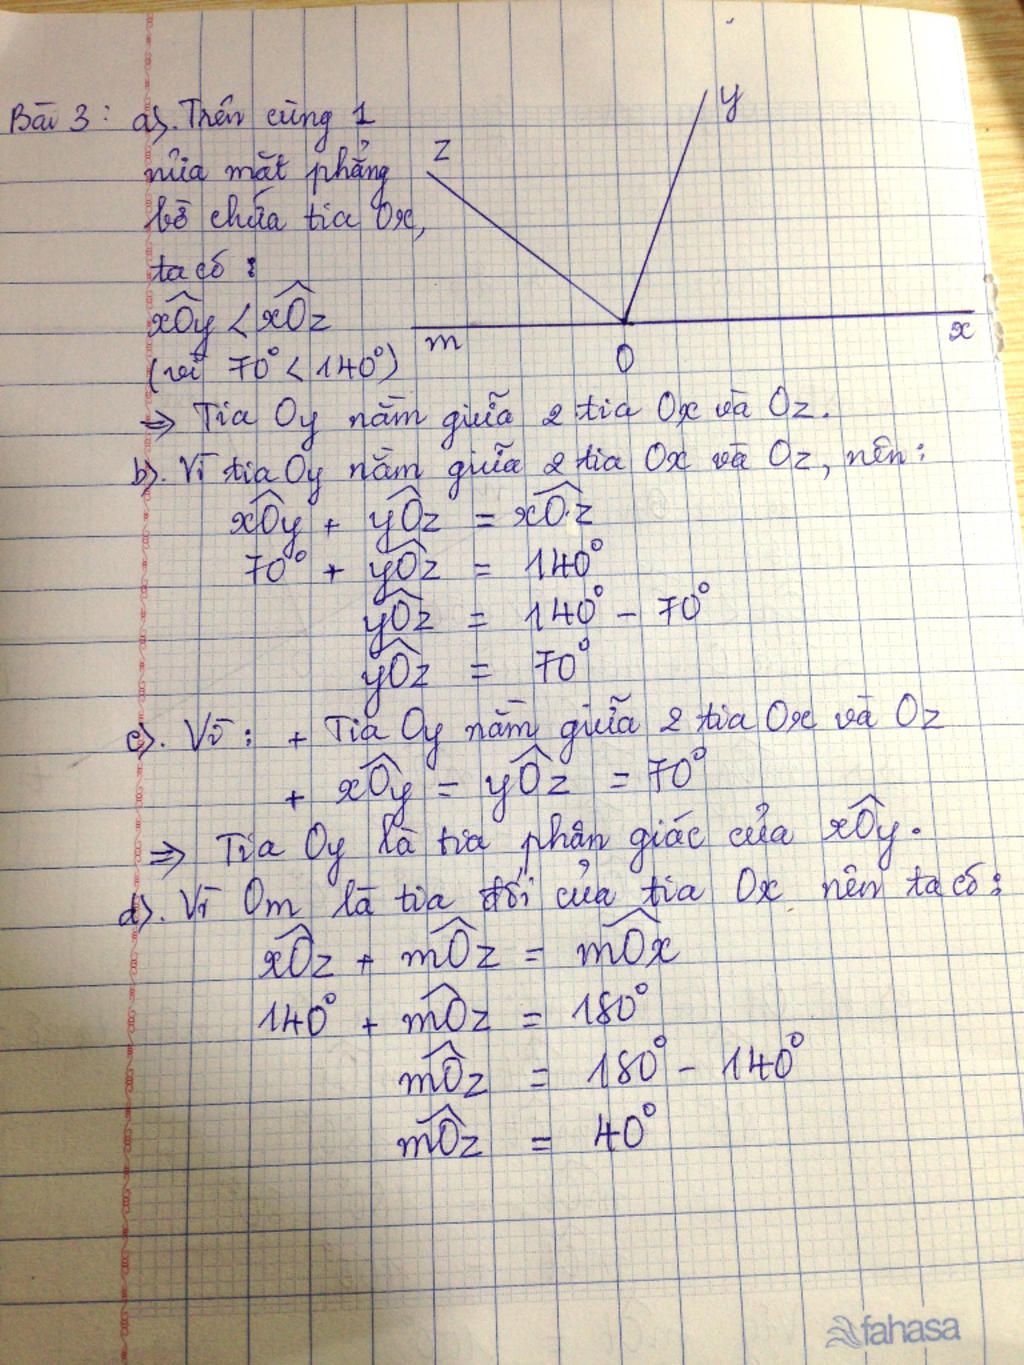 Bài 3: a). Trên cùng 1
nửa mặt phẳng
bờ chứa tia Ox,
ta có:
xÔy < xÔz
(vì 70° < 140°)
z
y
m
O
x
⇒ Tia Oy nằm giữa 2 tia Ox và Oz.
b). Vì tia Oy nằm giữa 2 tia Ox và Oz, nên:
xÔy + yÔz = xÔz
70° + yÔz = 140°
yÔz = 140° - 70°
yÔz = 70°
c). Vì: + Tia Oy nằm giữa 2 tia Ox và Oz
+ xÔy = yÔz = 70°
⇒ Tia Oy là tia phân giác của xÔy.
d). Vì Om là tia đối của tia Ox nên ta có:
xÔz + mÔz = mÔx
140° + mÔz = 180°
mÔz = 180° - 140°
mÔz = 40°
fahasa